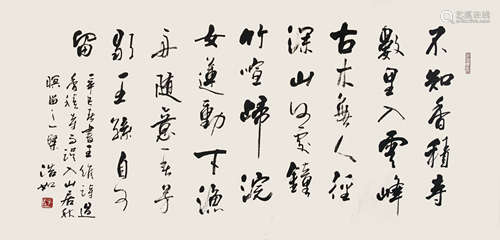 不知香積寺
數里入雲峰
古木無人徑
深山何處鐘
竹喧歸浣
女蓮動下漁
舟隨意春芳
歇王孫自可
留
辛巳 書王維詩過
香積寺 入山居秋
暝 之一